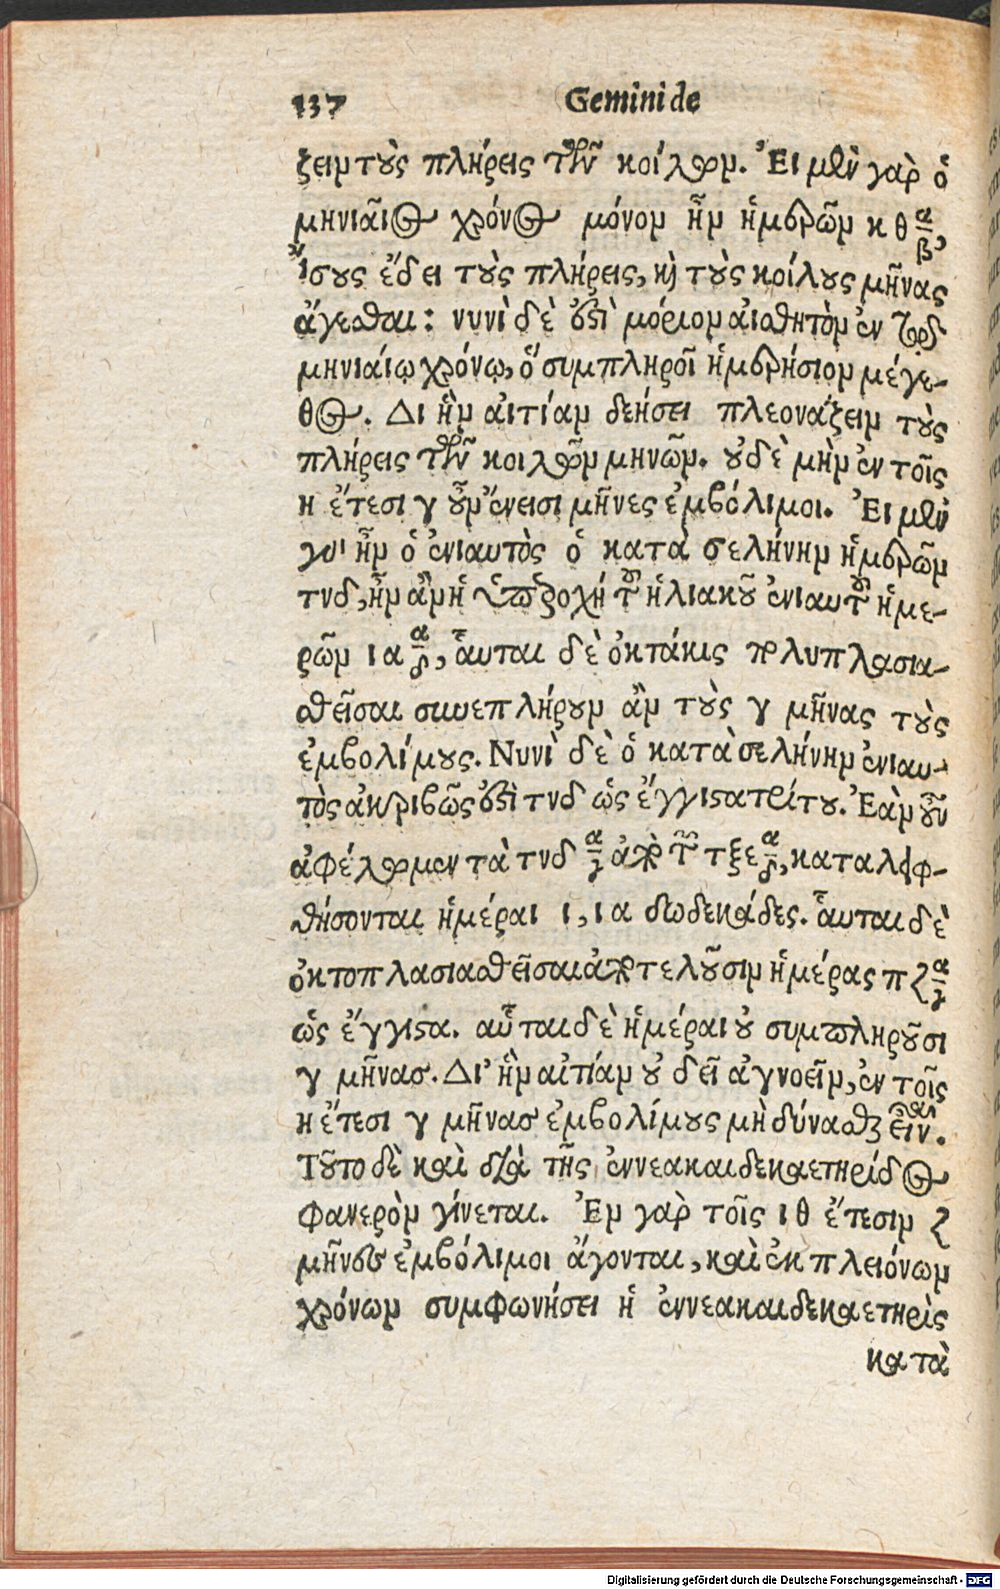 137 Gemini de
ζειν τοὺς πλήρεις τῶν κοίλων. Ἐι μὲν γὰρ ὁ
μηνιαῖος χρόνος μόνον ἦν ἡμερῶν κθ α/β,
ἴσους ἔδει τοὺς πλήρεις, καὶ τοὺς κοίλους μῆνας
ἄγεσθαι: νυνὶ δὲ ἐστὶ μόριον αἰσθητὸν ἐν τῷ
μηνιαίῳ χρόνῳ, ὃ συμπληροῖ ἡμερήσιον μέγε-
θος. Δι ἣν αἰτίαν δεήσει πλεονάζειν τοὺς
πλήρεις τῶν κοιλων μηνῶν. οὐδὲ μὴν ἐν τοῖς
η ἔτεσι γ οὖν ἔνεισι μῆνες ἐμβόλιμοι. Ἐι μὲν
γὰρ ἦν ὁ ἐνιαυτὸς ὁ κατὰ σελήνην ἡμερῶν
τνδ, ἦν ἂν ἡ ὑπεροχή τοῦ ἡλιακοῦ ἐνιαυτοῦ ἡμε-
ρῶν ια α/δ, αὗται δὲ ὀκτάκις πολυπλασια-
σθεῖσαι συνεπλήρουν ἂν τοὺς γ μῆνας τοὺς
ἐμβολίμους. Νυνὶ δὲ ὁ κατὰ σελήνην ἐνιαυ-
τὸς ἀκριβῶς ἐστὶ τνδ ὡς ἔγγιστα τρίτου. Ἐὰν οὖν
ἀφέλωμεν τὰ τνδ α/γ ἀπὸ τῶν τξε α/δ, καταλειφ-
θήσονται ἡμέραι ι, ια δωδεκάδες. αὗται δὲ
ὀκτοπλασιασθεῖσαι ἀποτελοῦσιν ἡμέρας πζ α/γ
ὡς ἔγγιστα. αὗται δὲ ἡμέραι οὐ συμπληροῦσι
γ μῆνας. Δι' ἣν αἰτίαν οὐ δεῖ ἀγνοεῖν, ἐν τοῖς
η ἔτεσι γ μῆνας ἐμβολίμους μὴ δύνασθαι εἶναι.
Τοῦτο δὲ καὶ διὰ τῆς ἐννεακαιδεκαετηρίδος
φανερὸν γίνεται. Ἐν γὰρ τοῖς ιθ ἔτεσιν ζ
μῆνες ἐμβόλιμοι ἄγονται, καὶ ἐκ πλειόνων
χρόνων συμφωνήσει ἡ ἐννεακαιδεκαετηρὶς
κατὰ
Digitalisierung gefördert durch die Deutsche Forschungsgemeinschaft - DFG